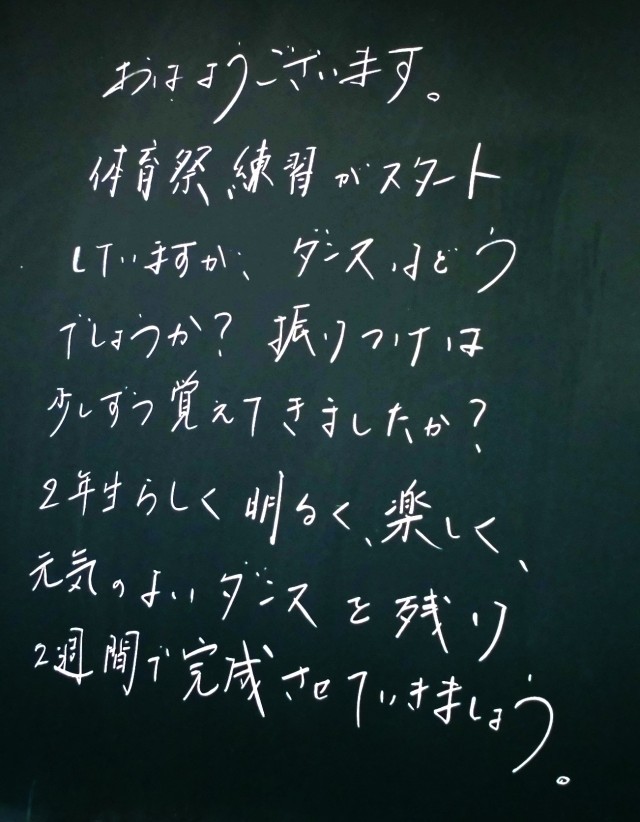 おはようございます。
体育祭練習がスタート
していますが、ダンスはどう
でしょうか？振りつけは
少しずつ覚えてきましたか？
2年生らしく明るく、楽しく、
元気のよいダンスを残り
2週間で完成させていきましょう。